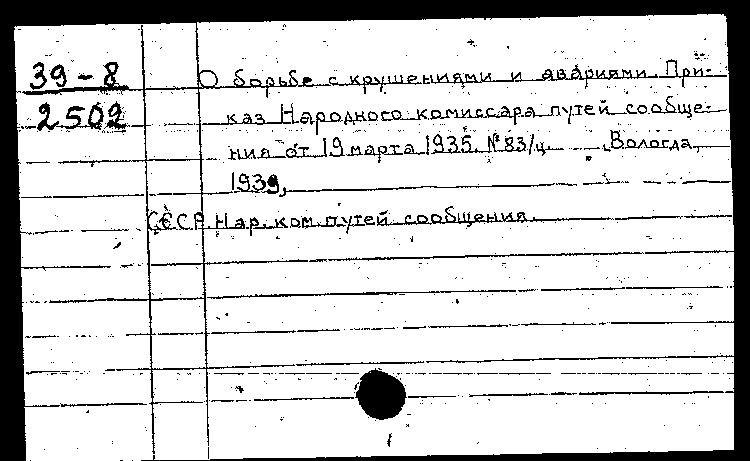 39-8
2502
О борьбе с крушениями и авариями. При-
каз Народного комиссара путей сообще-
ния от 19 марта 1935. №83/ц. Вологда,
1939,
СССР. Нар. ком. путей сообщения.